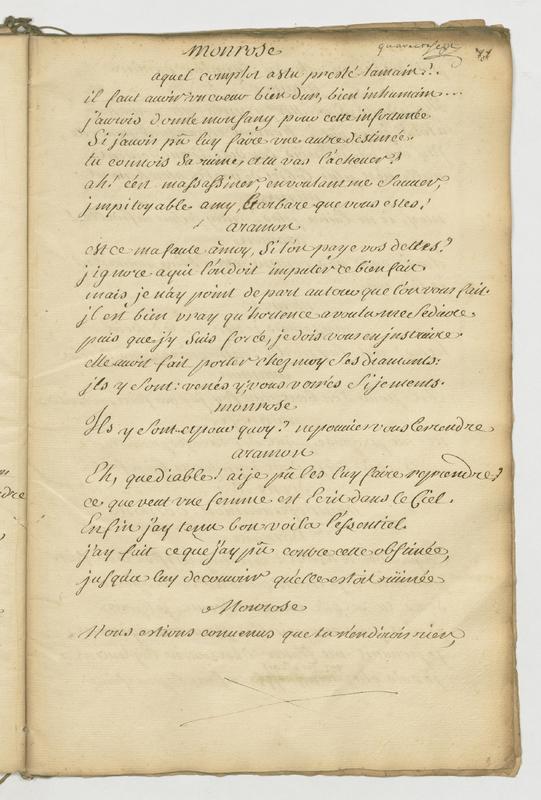 quarante sept
47
monrose
aquel complot as tu presté ta main?.
il faut avoir vn coeur bien dur, bien inhumain...
j'aurois donné mon sang pour cette infortunée
Si j'avois pû luy faire vne autre destinée.
tu connois sa ruine, et tu vas l'achever?
ah! c'en massassiner, en voulant me sauver,
jmpitoyable amy, Barbare que vous estes!
aramon
est ce ma faute à moy, Si l'on paye vos dettes?
j'ignore aqui l'on doit imputer ce bien fait
mais je n'ay point de part au tour que l'on vous fait.
jl est bien vray qu'hortence a voulu me seduire
puis que j'y suis forcé, je dois vous en jnstruire.
elle avoit fait porter chez moy ses diamants:
jls y sont: venés y; vous verrés si je ments.
monrose
Ils y sont et pour quoy? ne pouviez vous les rendre
aramon
Eh, que diable! ai je pû les luy faire reprendre?
ce que veut vne femme est Ecrit dans le Ciel.
Enfin j'ay tenu bon voila l'essentiel.
j'ay fait ce que j'ay pû contre cette obstinée,
jusqu'a luy decouvrir qu'elle estoit rüinée
Monrose
Nous estions convenus que tu n'en dirois rien,